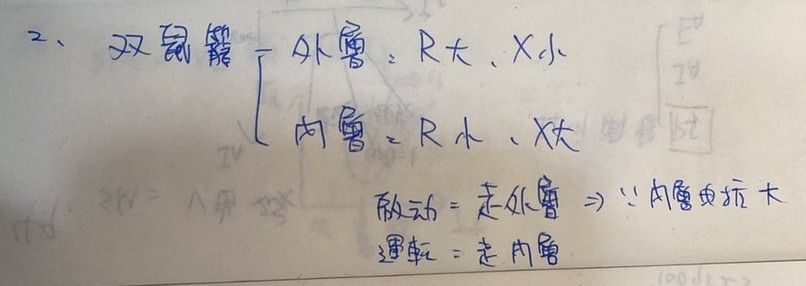 2、双鼠籠 - 外層：R大、X小
內層：R小、X大
啟动：走外層 ⇒ ∵內層電抗大
運転：走內層